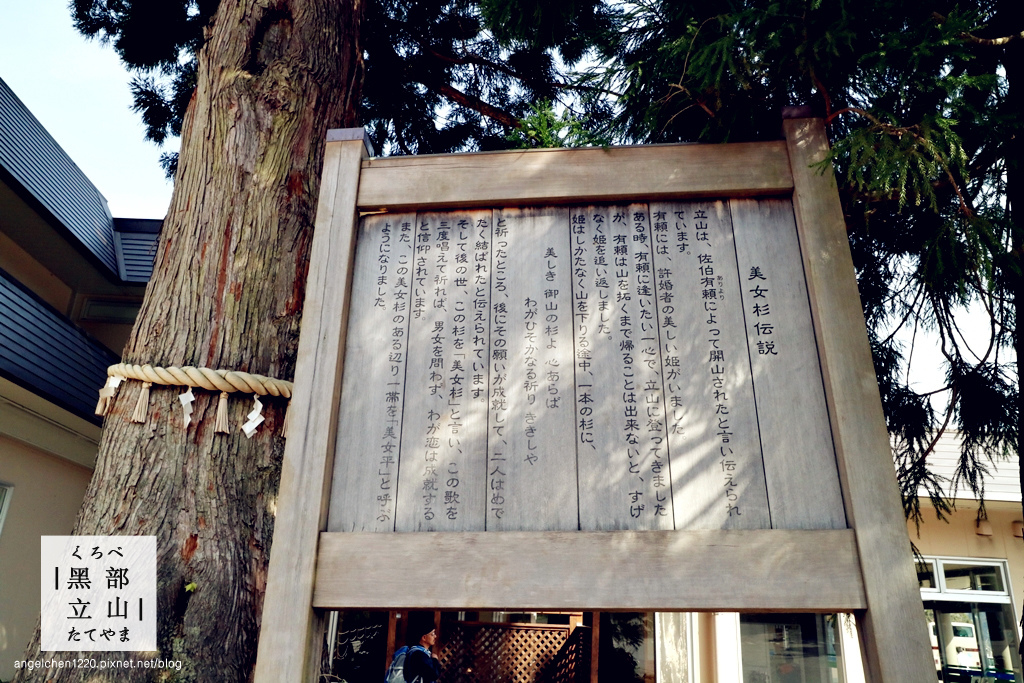 美女杉伝説
立山は、佐伯有頼によって開山されたと言い伝えられ
ありより
ています。
有頼には、許婚者の美しい姫がいました
ある時、有頼に逢いたい一心で、立山に登ってきました
が、有頼は山を拓くまで帰ることは出来ないと、すげ
なく姫を追い返しました。
姫はしかたなく山を下りる途中、一本の杉に、
美しき 御山の杉よ 心あらば
わがひそかなる祈り ききしや
と祈ったところ、後にその願いが成就して、二人はめで
たく結ばれたと伝えられています
そして後の世、この杉を「美女杉」と言い、この歌を
三度唱えて祈れば、男女を問わず、わが恋は成就する
と信仰されています。
また、この美女杉のある辺り一帯を「美女平」と呼ぶ
ようになりました。
くろべ
黑部
立山
たてやま
angelchen1220.pixnet.net/blog